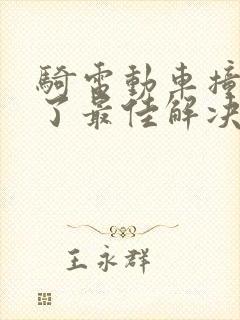 騎電動車撞
了最佳解決
王永群